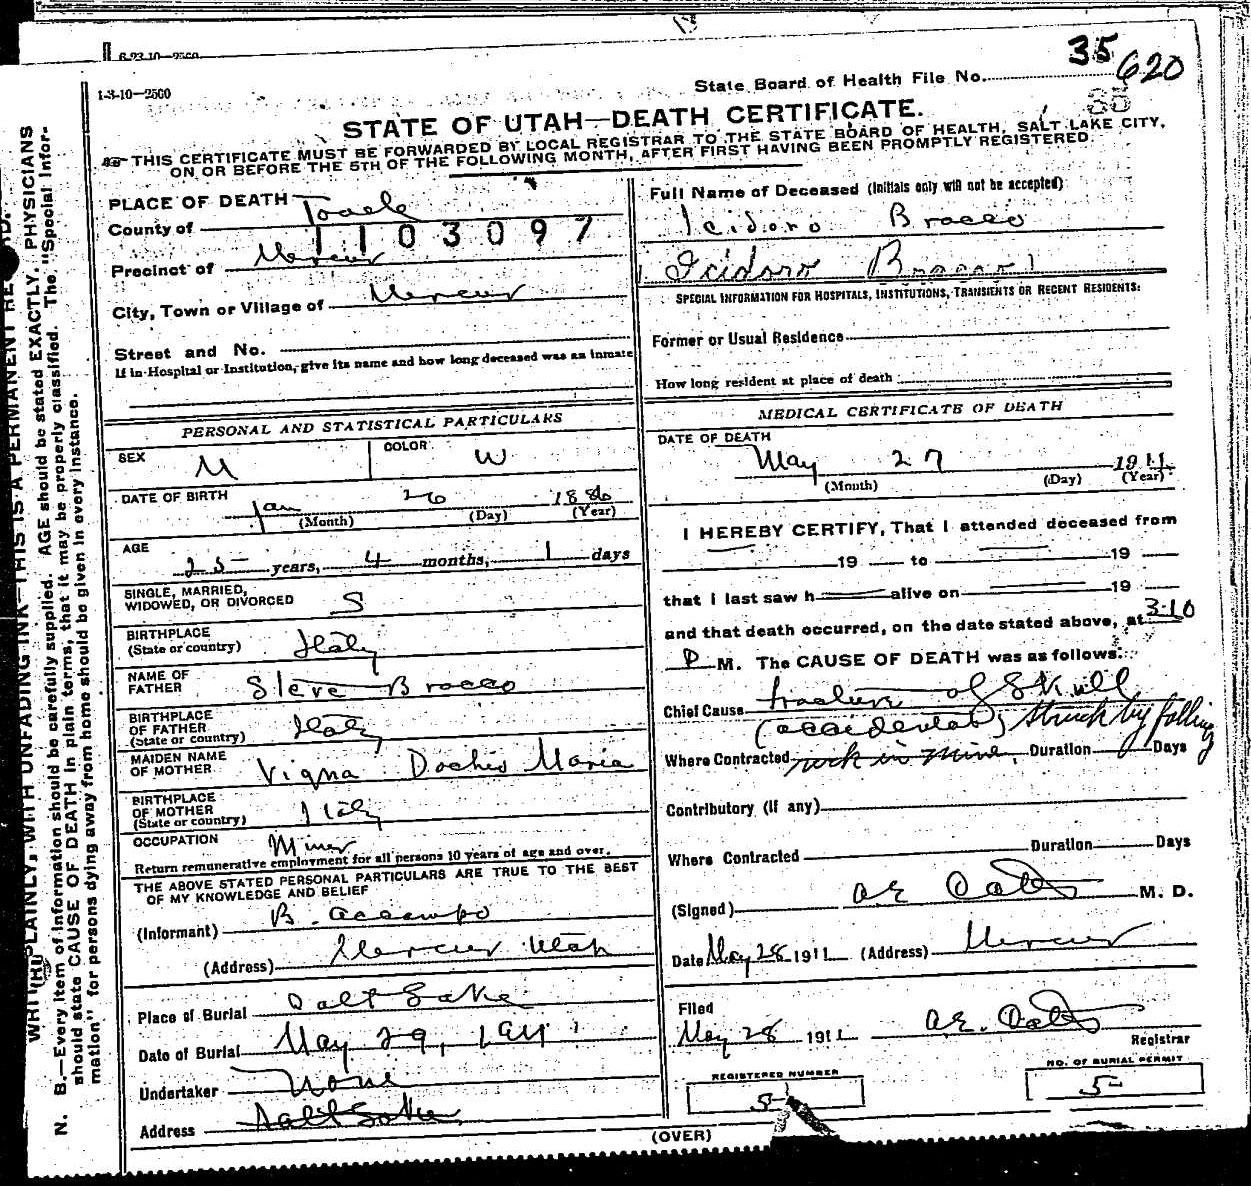 6-23-10-2560
1-3-10-2560
35
620
State Board of Health File No.
STATE OF UTAH—DEATH CERTIFICATE.
THIS CERTIFICATE MUST BE FORWARDED BY LOCAL REGISTRAR TO THE STATE BOARD OF HEALTH, SALT LAKE CITY,
ON OR BEFORE THE 5TH OF THE FOLLOWING MONTH, AFTER FIRST HAVING BEEN PROMPTLY REGISTERED.
PLACE OF DEATH
County of Tooele
1103097
Precinct of Mercur
City, Town or Village of Mercur
Street and No.
If in Hospital or Institution, give its name and how long deceased was an inmate
PERSONAL AND STATISTICAL PARTICULARS
SEX M COLOR W
DATE OF BIRTH
Jan 26 1886
(Month) (Day) (Year)
AGE
25 years, 4 months, 1 days
SINGLE, MARRIED,
WIDOWED, OR DIVORCED S
BIRTHPLACE
(State or country) Italy
NAME OF
FATHER Steve Bracco
BIRTHPLACE
OF FATHER
(State or country) Italy
MAIDEN NAME
OF MOTHER Vigna Dochis Maria
BIRTHPLACE
OF MOTHER
(State or country) Italy
OCCUPATION Miner
Return remunerative employment for all persons 10 years of age and over.
THE ABOVE STATED PERSONAL PARTICULARS ARE TRUE TO THE BEST
OF MY KNOWLEDGE AND BELIEF
(Informant) B. Accampo
(Address) Mercur Utah
Place of Burial Salt Lake
Date of Burial May 29, 1911
Undertaker None
Address Salt Lake
Full Name of Deceased (Initials only will not be accepted)
Icidoro Bracco
Icidoro
SPECIAL INFORMATION FOR HOSPITALS, INSTITUTIONS, TRANSIENTS OR RECENT RESIDENTS:
Former or Usual Residence
How long resident at place of death
MEDICAL CERTIFICATE OF DEATH
DATE OF DEATH
May 27 1911
(Month) (Day) (Year)
I HEREBY CERTIFY, That I attended deceased from
19 to 19
that I last saw h alive on 19
and that death occurred, on the date stated above, at 3:10
P M. The CAUSE OF DEATH was as follows:
Chief Cause fracture of Skull
(accidental) struck by falling
Where Contracted rock in mine, Duration Days
Contributory (if any)
Where Contracted Duration Days
(Signed) M. D.
Date May 28 1911 (Address) Mercur
Filed
May 28 1911
Registrar
REGISTERED NUMBER
5
NO. OF BURIAL PERMIT
5
(OVER)
N. B.—Every item of information should be carefully supplied. AGE should be stated EXACTLY. PHYSICIANS
should state CAUSE OF DEATH in plain terms, that it may be properly classified. The "Special Infor-
mation" for persons dying away from home should be given in every instance.
PLAINLY, WITH UNFADING INK—THIS IS A PERMANENT